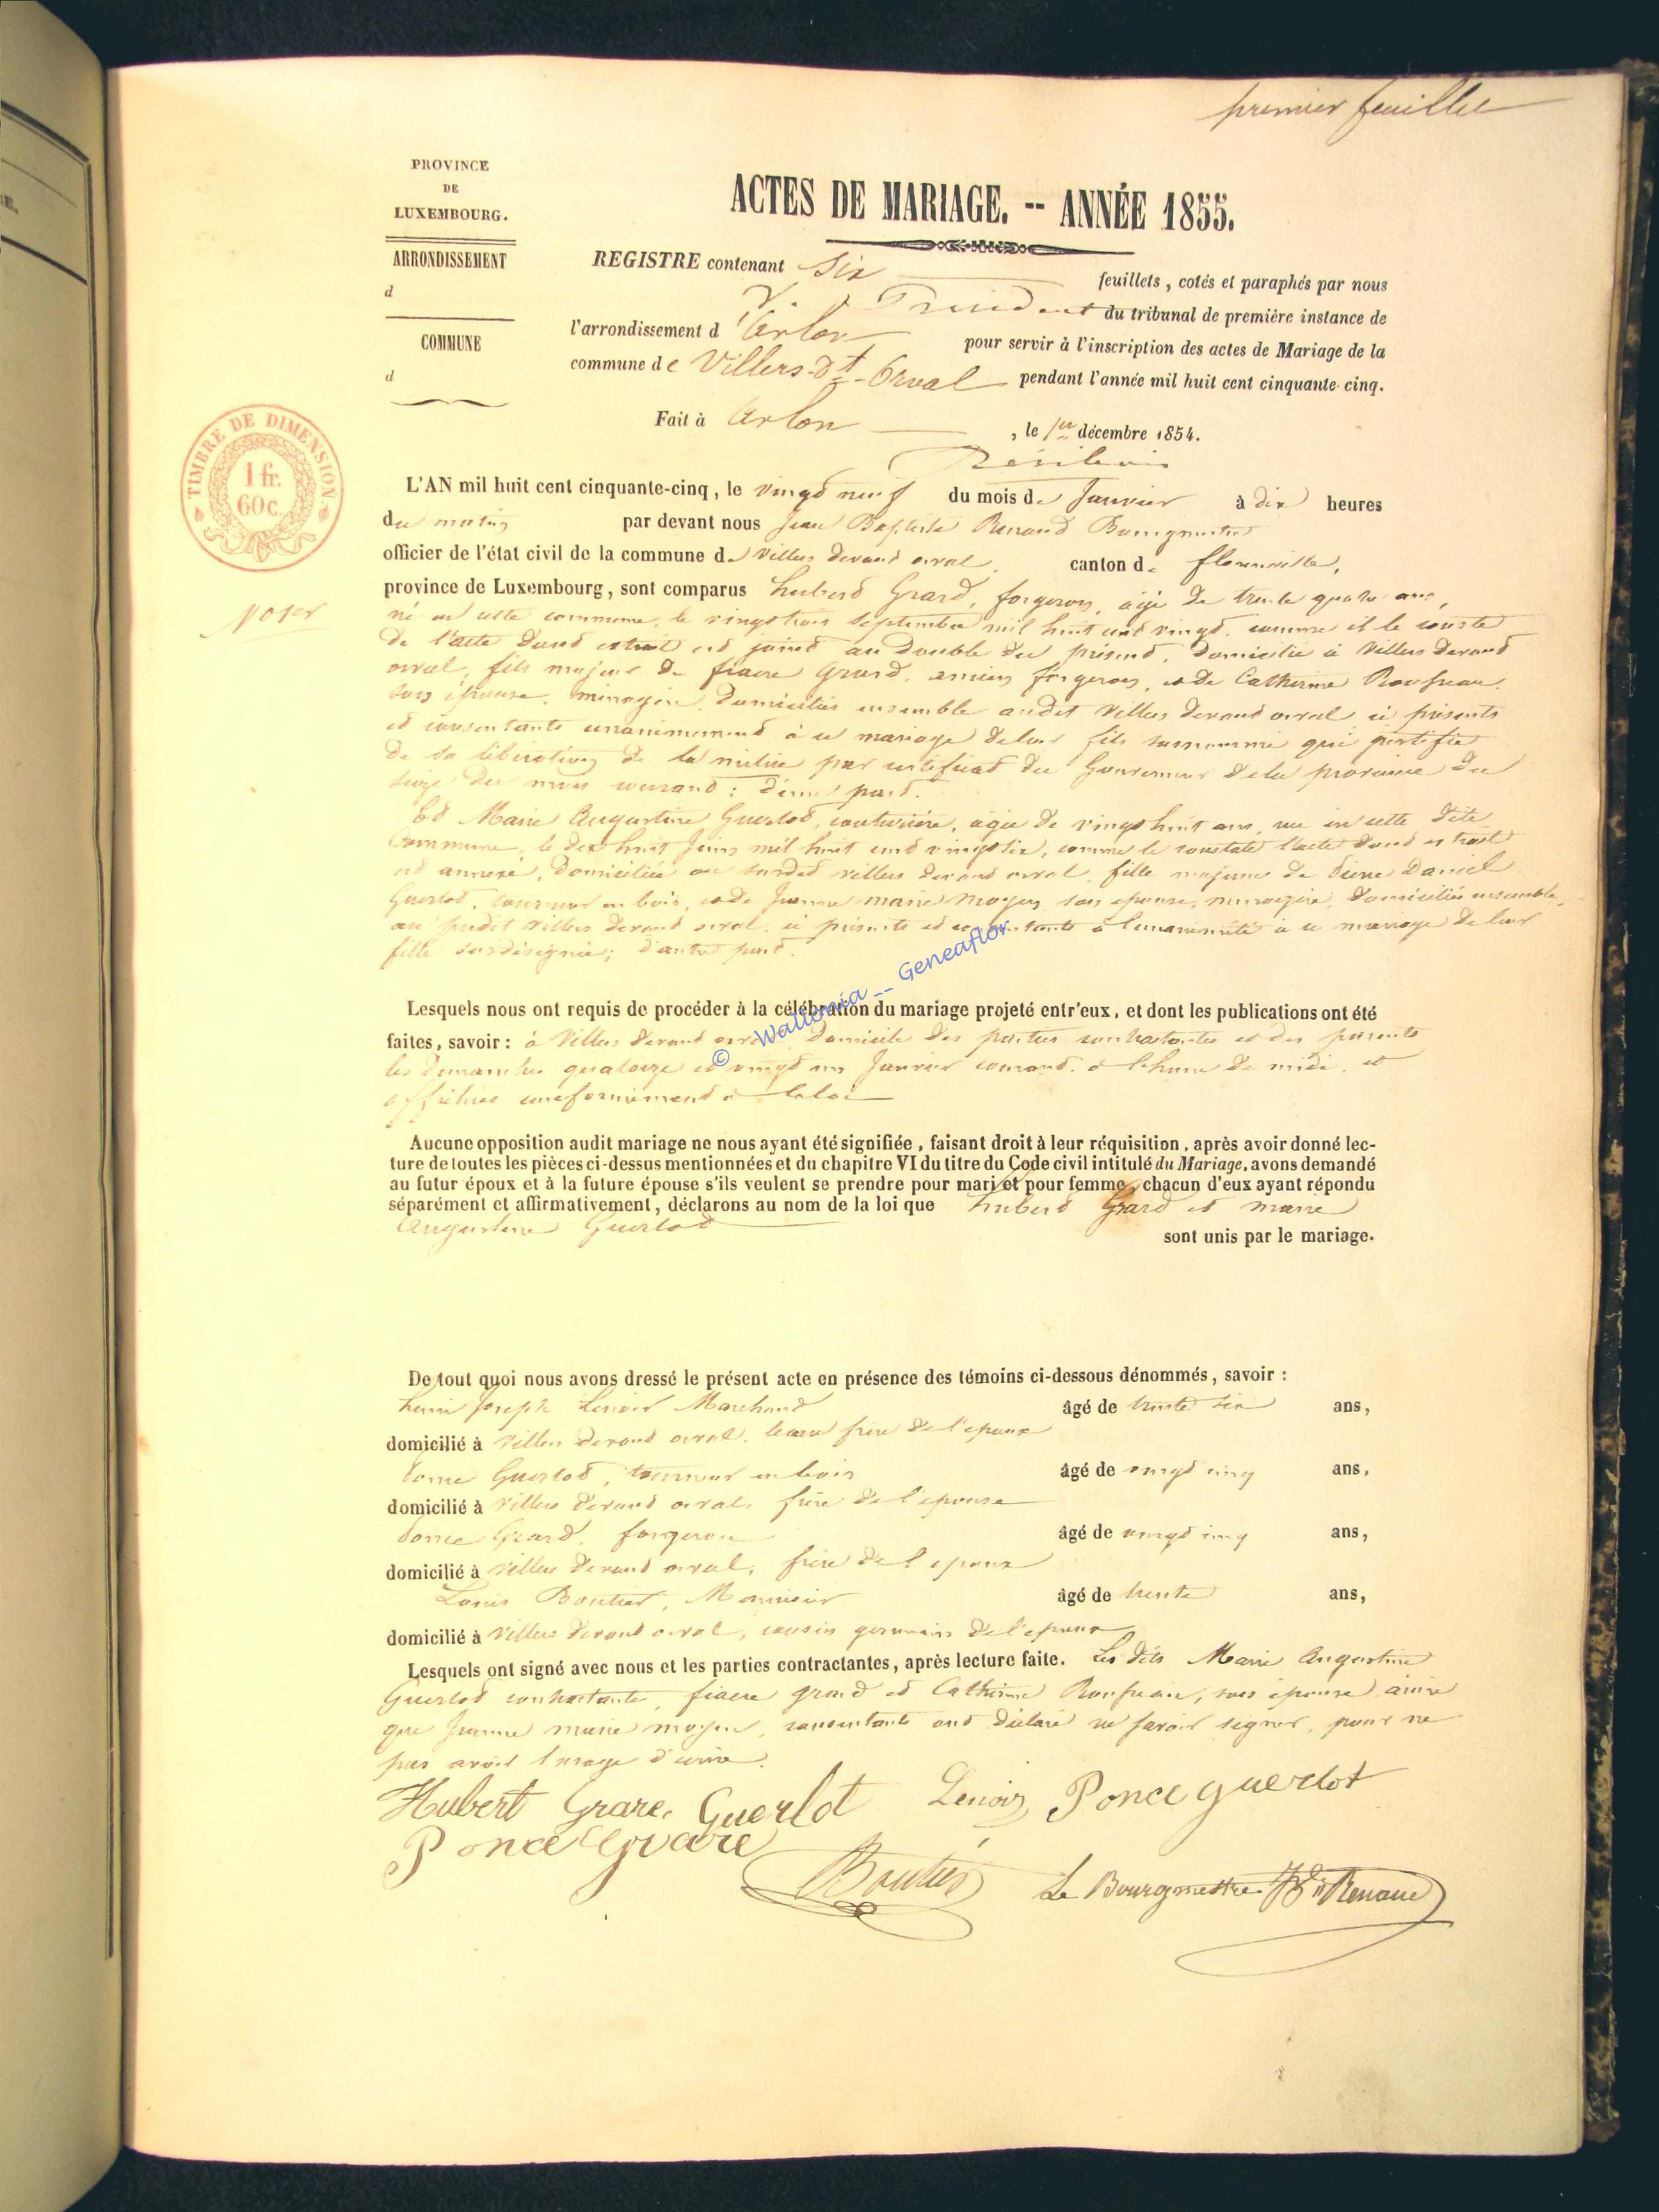 premier feuillet
PROVINCE
DE
LUXEMBOURG.
ACTES DE MARIAGE. -- ANNÉE 1855.
ARRONDISSEMENT
d
COMMUNE
d
REGISTRE contenant Six feuillets, cotés et paraphés par nous
Président du tribunal de première instance de
l'arrondissement d'Arlon pour servir à l'inscription des actes de Mariage de la
commune de Villers-Dt-Orval pendant l'année mil huit cent cinquante-cinq.
Fait à Arlon, le 1er décembre 1854.
TIMBRE DE DIMENSION
1 fr.
60 c.
L'AN mil huit cent cinquante-cinq, le vingt neuf du mois de Janvier à dix heures
du matin par devant nous Jean Baptiste Renaud Bourgmestre
officier de l'état civil de la commune de Villers devant orval, canton de florenville,
No 1er
province de Luxembourg, sont comparus hubert Grard, forgeron, âgé de trente quatre ans,
né en cette commune, le vingt trois septembre mil huit cent vingt, comme il le conste
de l'acte dont extrait est joint au double du présent, domicilié à Villers devant
orval, fils majeur de fiacre Grard, ancien forgeron, et de Catherine Roufneau
son épouse, ménagère, domiciliés ensemble audit Villers devant orval ici présents
et consentants unanimement à ce mariage de leur fils surnommé qui justifie
de sa libération de la milice par certificat du Gouverneur de la province du
seize du mois courant : d'une part.
Et Marie Augustine Guerlot, couturière, âgée de vingt huit ans, née en cette dite
Commune, le dix huit Juin mil huit cent vingt six, comme le constate l'acte dont extrait
est annexé, domiciliée au susdit villers devant orval, fille majeure de Pierre Daniel
Guerlot, tourneur en bois, et de Jeanne marie Moyen son épouse, ménagère, domiciliés ensemble
au susdit Villers devant orval, ici présents et consentants à l'unanimité à ce mariage de leur
fille susdésignée; d'autre part.
© Wallonia -- Geneaflor
Lesquels nous ont requis de procéder à la célébration du mariage projeté entr'eux, et dont les publications ont été
faites, savoir : à Villers devant orval, domicile des parties contractantes et des parents
les dimanches quatorze et vingt un Janvier courant, à l'heure de midi, et
affichées conformément à la loi
Aucune opposition audit mariage ne nous ayant été signifiée, faisant droit à leur réquisition, après avoir donné lec-
ture de toutes les pièces ci-dessus mentionnées et du chapitre VI du titre du Code civil intitulé du Mariage, avons demandé
au futur époux et à la future épouse s'ils veulent se prendre pour mari et pour femme, chacun d'eux ayant répondu
séparément et affirmativement, déclarons au nom de la loi que hubert Grard et marie
Augustine Guerlot
sont unis par le mariage.
De tout quoi nous avons dressé le présent acte en présence des témoins ci-dessous dénommés, savoir :
henri Joseph Lenoir Marchand âgé de trente six ans,
domicilié à Villers devant orval, beau frère de l'époux
Ponce Guerlot, tourneur en bois âgé de vingt cinq ans,
domicilié à Villers devant orval, frère de l'épouse
Ponce Grard, forgeron âgé de vingt cinq ans,
domicilié à Villers devant orval, frère de l'époux
Louis Boutier, Menuisier âgé de trente ans,
domicilié à Villers devant orval, cousin germain de l'époux
Lesquels ont signé avec nous et les parties contractantes, après lecture faite. Les dits Marie Augustine
Guerlot contractante, fiacre grard et Catherine Roufneau, son épouse, ainsi
que Jeanne marie moyen, consentants ont déclaré ne savoir signer, pour ne
pas avoir l'usage d'écrire.
Hubert Grare Guerlot Lenoir Ponce guerlot
Ponce Grare
Boutier Le Bourgmestre JBte Renaud